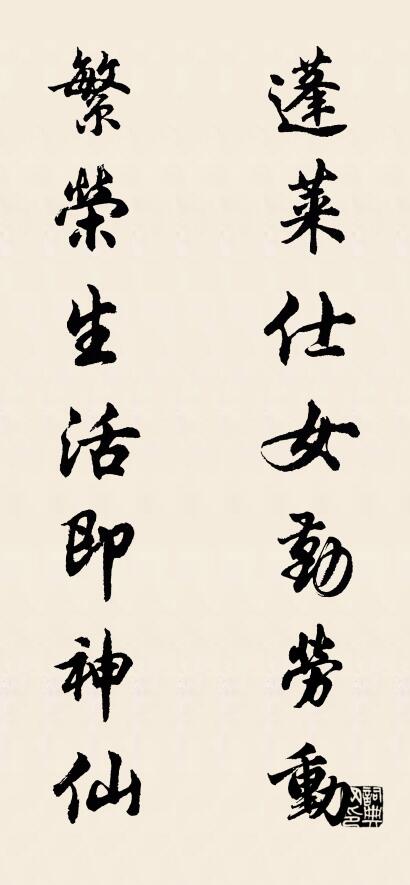 蓬萊仕女勤勞動
繁榮生活即神仙